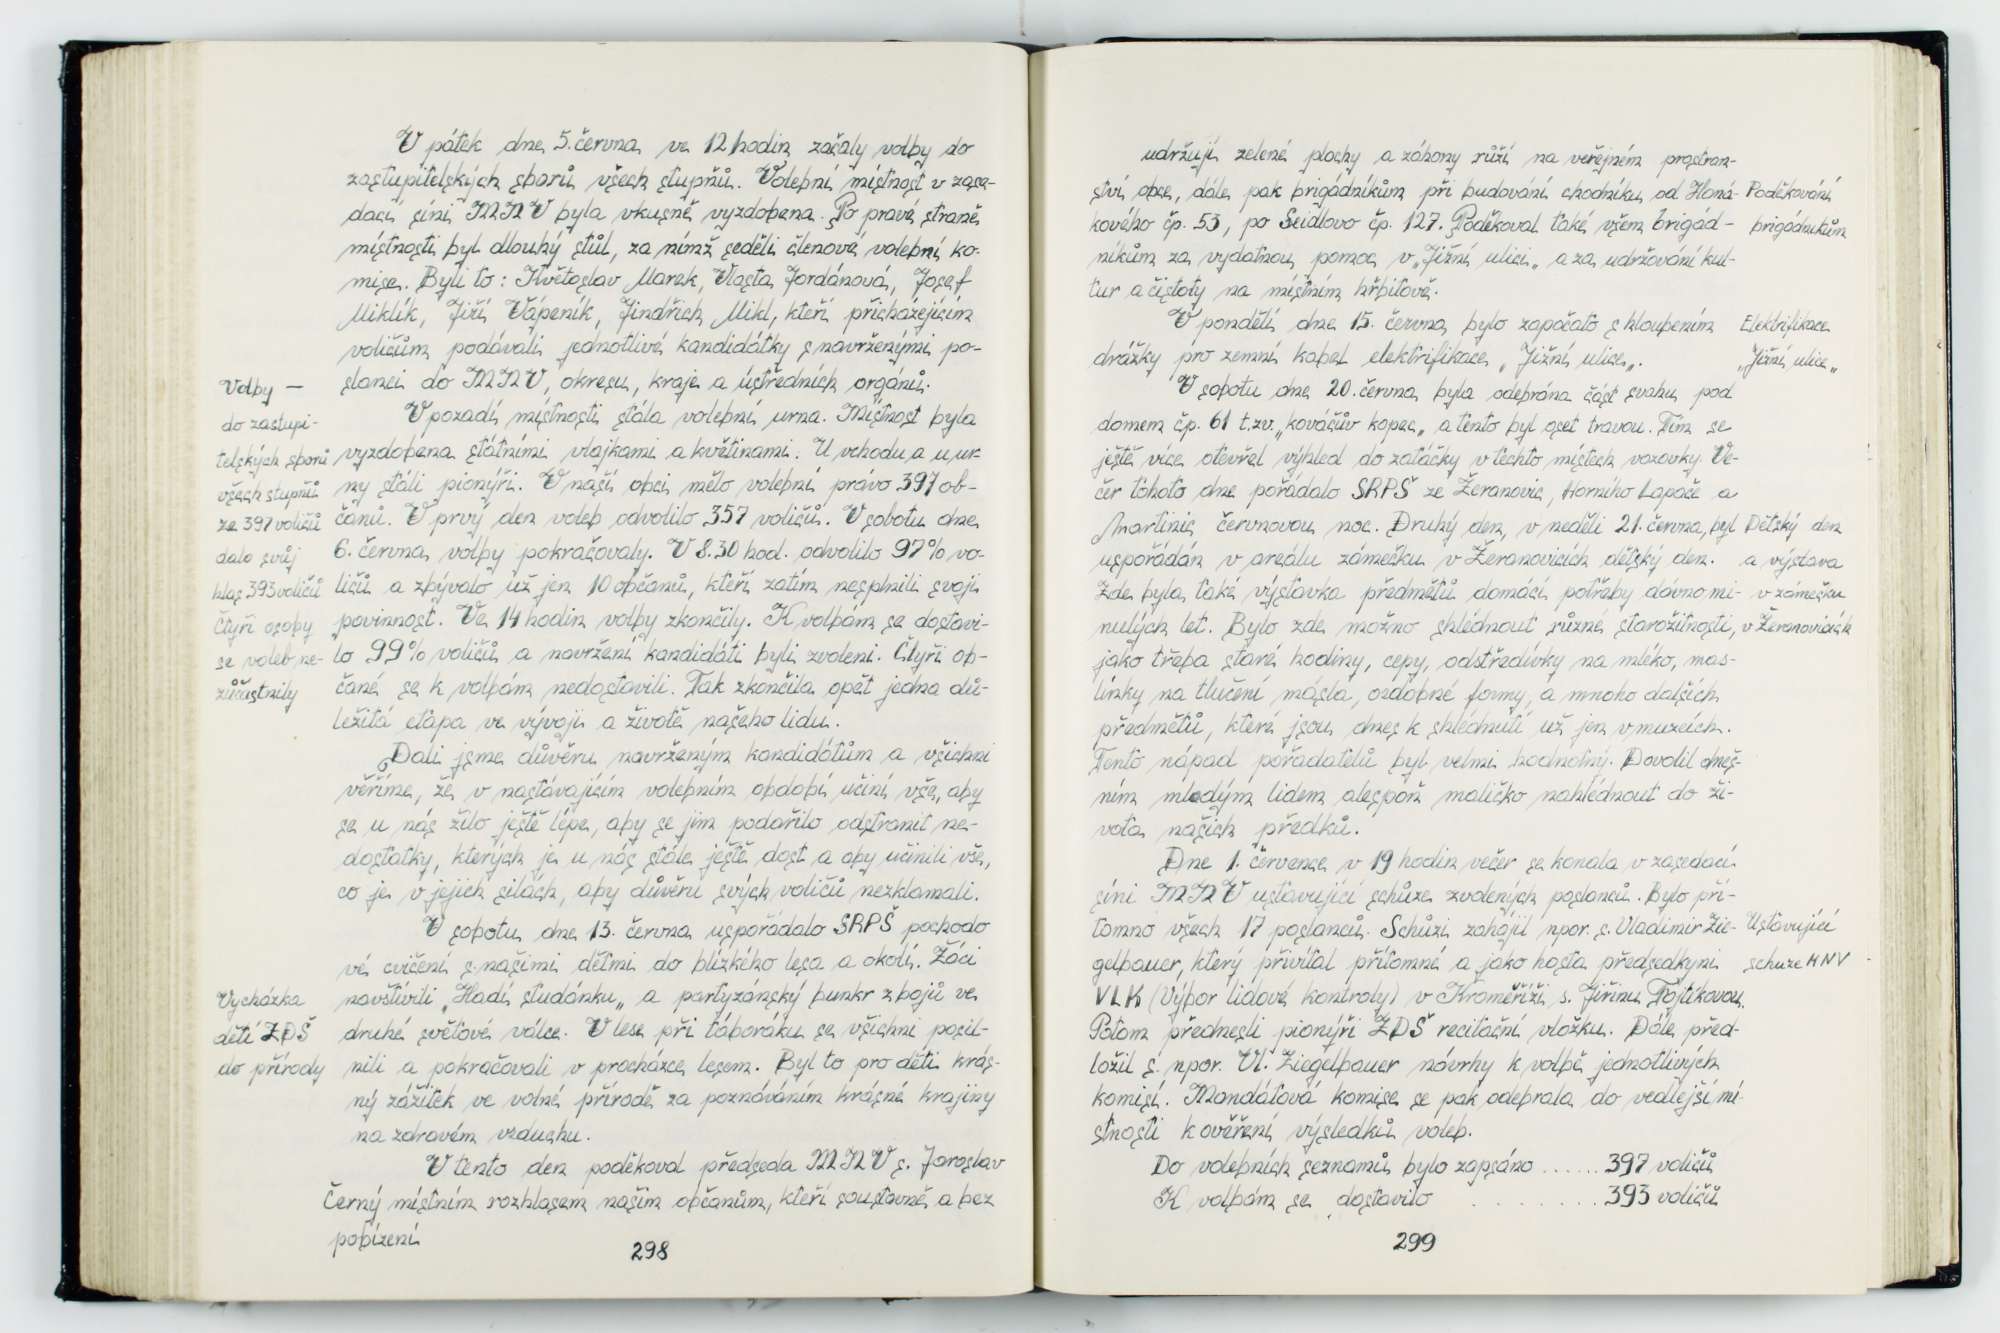 V pátek dne 5. června ve 12 hodin začaly volby do
zastupitelských sborů všech stupňů. Volební místnost v zase-
dací síni MNV byla vkusně vyzdobena. Po pravé straně
místnosti byl dlouhý stůl, za nímž seděli členové volební ko-
mise. Byli to: Květoslav Marek, Vlasta Jordánová, Josef
Miklík, Jiří Vápeník, Jindřich Mikl, kteří přicházejícím
voličům podávali jednotlivé kandidátky s navrženými po-
slanci do MNV, okresu, kraje a ústředních orgánů.
V pozadí místnosti stála volební urna. Místnost byla
vyzdobena státními vlajkami a květinami. U vchodu a u ur-
ny stáli pionýři. V naší obci mělo volební právo 397 ob-
čanů. V prvý den voleb odvolilo 357 voličů. V sobotu dne
6. června volby pokračovaly. V 8.30 hod. odvolilo 97% vo-
ličů a zbývalo už jen 10 občanů, kteří zatím nesplnili svoji
povinnost. Ve 14 hodin volby zkončily. K volbám se dostavi-
lo 99% voličů a navržení kandidáti byli zvoleni. Čtyři ob-
čané se k volbám nedostavili. Tak zkončila opět jedna dů-
ležitá etapa ve vývoji a životě našeho lidu.
Dali jsme důvěru navrženým kandidátům a všichni
věříme, že v nastávajícím volebním období učiní vše, aby
se u nás žilo ještě lépe, aby se jim podařilo odstranit ne-
dostatky, kterých je u nás stále ještě dost a aby učinili vše,
co je v jejich silách, aby důvěru svých voličů nezklamali.
V sobotu dne 13. června uspořádalo SRPŠ pochodo
vé cvičení s našimi dětmi do blízkého lesa a okolí. Žáci
navštívili „Hadí studánku„ a partyzánský bunkr z bojů ve
druhé světové válce. V lese při táboráku se všichni posil-
nili a pokračovali v procházce lesem. Byl to pro děti krás-
ný zážitek ve volné přírodě za poznáváním krásné krajiny
na zdravém vzduchu.
V tento den poděkoval předseda MNV s. Jaroslav
Černý místním rozhlasem našim občanům, kteří soustavně a bez
pobízení
Volby —
do zastupi-
telských sborů
všech stupňů
ze 397 voličů
dalo svůj
hlas 393 voličů
Čtyři osoby
se voleb ne-
zůčastnily
Vycházka
dětí ZDŠ
do přírody
298
udržují zelené plochy a záhony růží na veřejném prostran-
ství obce, dále pak brigádníkům při budování chodníku od Haná-
kového čp. 53, po Seidlovo čp. 127. Poděkoval také všem brigád-
níkům za vydatnou pomoc v „Jižní ulici„ a za udržování kul-
tur a čistoty na místním hřbitově.
V pondělí dne 15. června bylo započato s hloubením
drážky pro zemní kabel elektrifikace „Jižní ulice„.
V sobotu dne 20. června byla odebrána část svahu pod
domem čp. 61 t.zv. „kovářův kopec„ a tento byl oset travou. Tím se
ještě více otevřel výhled do zatáčky v těchto místech vozovky. Ve-
čer tohoto dne pořádalo SRPŠ ze Žeranovic, Horního Lapače a
Martinic červnovou noc. Druhý den, v neděli 21. června, byl
uspořádán v areálu zámečku v Žeranovicích dětský den.
Zde byla také výstavka předmětů domácí potřeby dávno mi-
nulých let. Bylo zde možno shlédnout různé starožitnosti,
jako třeba staré hodiny, cepy, odstředivky na mléko, más-
línky na tlučení másla, ozdobné formy, a mnoho dalších
předmětů, které jsou dnes k shlédnutí už jen v muzeích.
Tento nápad pořadatelů byl velmi hodnotný. Dovolil dneš-
ním mladým lidem alespoň maličko nahlédnout do ži-
vota našich předků.
Dne 1. července v 19 hodin večer se konala v zasedací
síni MNV ustavující schůze zvolených poslanců. Bylo pří-
tomno všech 17 poslanců. Schůzi zahájil npor. s. Vladimir Zie-
gelbauer, který přivítal přítomné a jako hosta předsedkyni
VLK (Výbor lidové kontroly) v Kroměříži s. Jiřinu Fojtíkovou.
Potom přednesli pionýři ZDŠ recitační vložku. Dále před-
ložil s. npor. Vl. Ziegelbauer návrhy k volbě jednotlivých
komisí. Mandátová komise se pak odebrala do vedlejší mí-
stnosti k ověření výsledků voleb.
Do volebních seznamů bylo zapsáno ...... 397 voličů
K volbám se dostavilo ........ 393 voličů
Poděkování
brigádníkům
Elektrifikace
„Jižní ulice„
Dětský den
a výstava
v zámečku
v Žeranovicích
Ustavující
schuze MNV
299